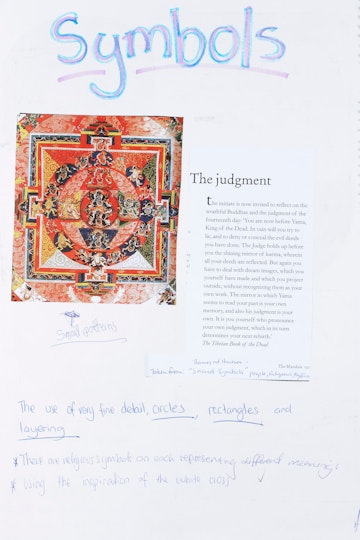 Symbols
The judgment
The initiate is now invited to reflect on the
wrathful Buddhas and the judgment of the
fourteenth day: 'You are now before Yama,
King of the Dead. In vain will you try to
lie, and to deny or conceal the evil deeds
you have done. The Judge holds up before
you the shining mirror of karma, wherein
all your deeds are reflected. But again you
have to deal with dream images, which you
yourself have made and which you project
outside, without recognizing them as your
own work. The mirror in which Yama
seems to read your past is your own
memory, and also his judgment is your
own. It is you yourself who pronounce
your own judgment, which in its turn
determines your next rebirth.'
The Tibetan Book of the Dead
The Mandala
Small patterns
Thames and Hudson -
Taken from "Sacred Symbols" people, religions,
The use of very fine detail, circles, rectangles and
layering
* There are religious symbols on each representing different meanings
* Using the inspiration of the white cross